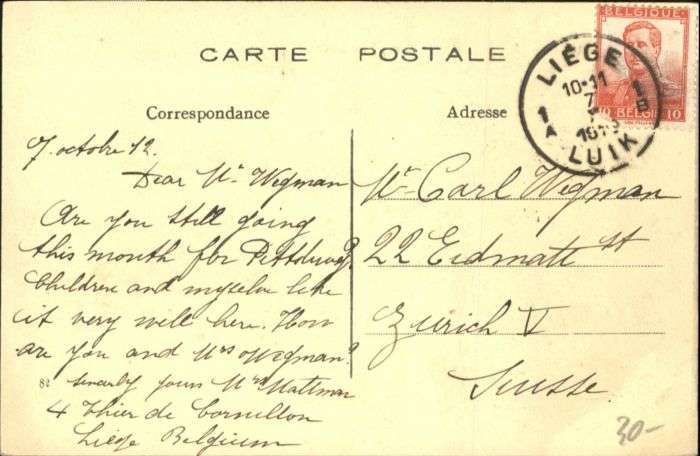 CARTE POSTALE
Correspondance
Adresse
BELGIQUE
10 BELGIË 10
LIÉGE
10-11
7
1 A
1 B
LUIK
7 octobre 12.
Dear Mr Wegman
Are you still going
this month for Pittsburg?
Children and myselve like
it very well here. How
are you and Mrs Wegman?
82 sincerly yours Mrs Mattman
4 Thier de Cornillon
Liége Belgium
Mr Carl Wegman
22 Eidmatt st
Zurich V
Suisse
30-